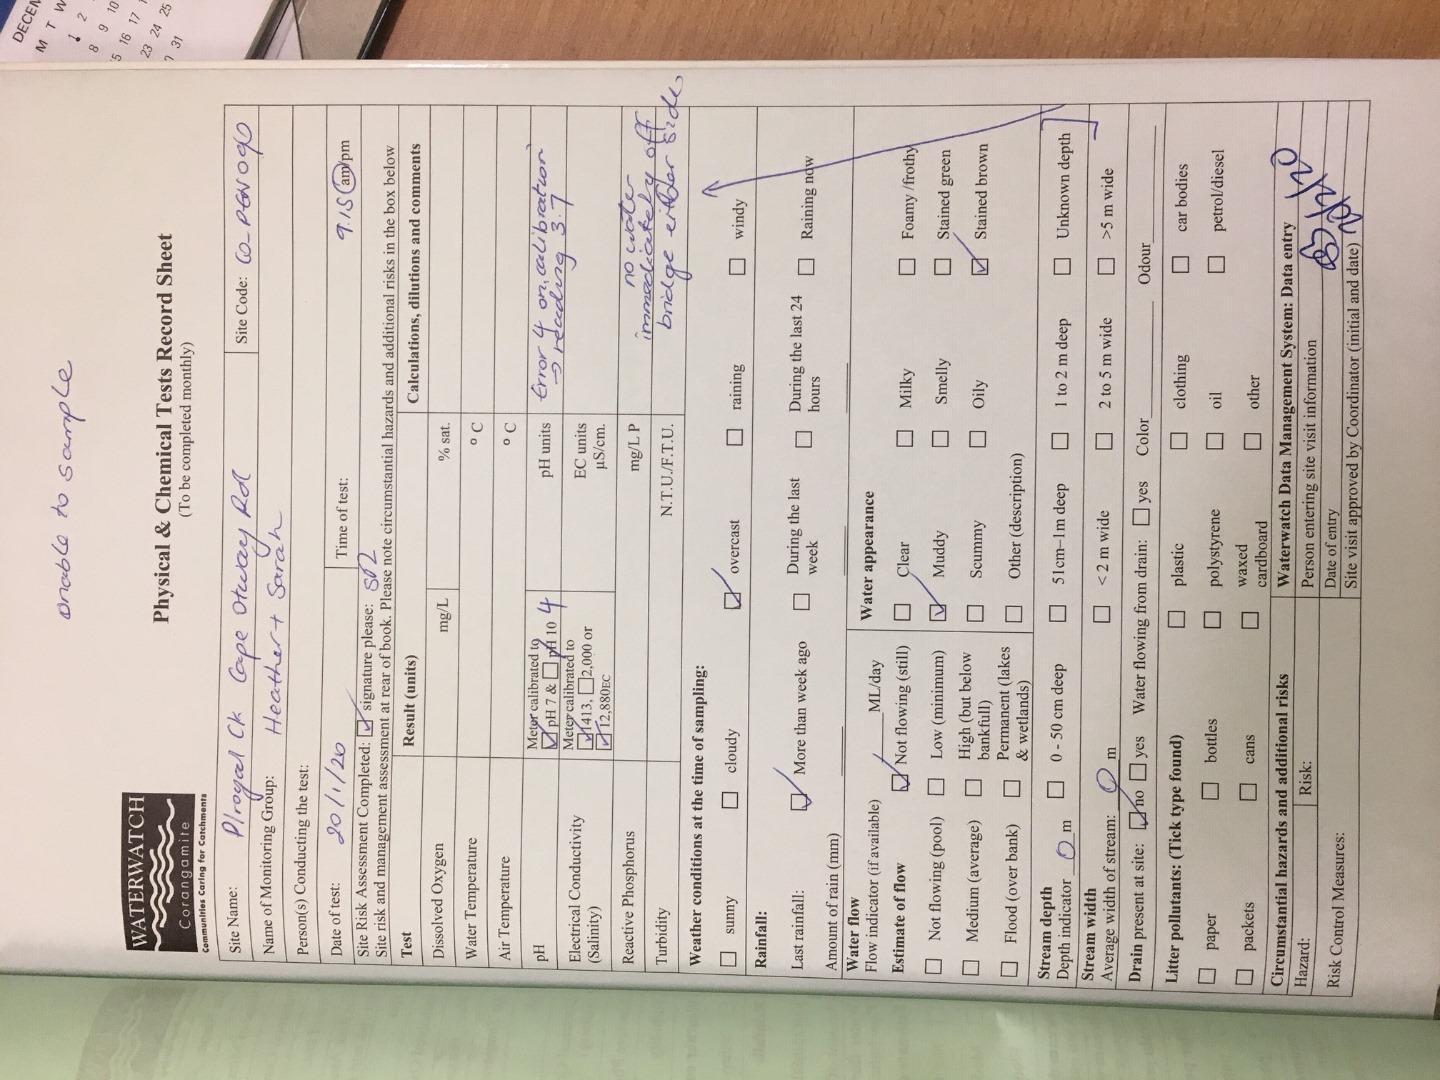 DECEM
M T W
1 2
8 9 10
15 16 17
23 24 25
31
unable to sample
WATERWATCH
Corangamite
Communities Caring for Catchments
Physical & Chemical Tests Record Sheet
(To be completed monthly)
Site Name: Pirogal Ck Cape Otway Rd Site Code: CO-PGN090
Name of Monitoring Group: Heather + Sarah
Person(s) Conducting the test:
Date of test: 20/1/20 Time of test: 9.15 am/pm
Site Risk Assessment Completed: ☑ signature please:
Site risk and management assessment at rear of book. Please note circumstantial hazards and additional risks in the box below
Test Result (units) Calculations, dilutions and comments
Dissolved Oxygen mg/L % sat.
Water Temperature °C
Air Temperature °C
pH Meter calibrated to ☑ pH 7 & ☐ pH 10 4 pH units Error 4 on calibration → reading 3.7
Electrical Conductivity (Salinity) Meter calibrated to ☑ 1413, ☐ 2,000 or ☑ 12,880EC EC units µS/cm.
Reactive Phosphorus mg/L P no water
Turbidity N.T.U./F.T.U. immediately off
bridge either side
Weather conditions at the time of sampling:
☐ sunny ☐ cloudy ☑ overcast ☐ raining ☐ windy
Rainfall:
Last rainfall: ☑ More than week ago ☐ During the last week ☐ During the last 24 hours ☐ Raining now
Amount of rain (mm)
Water flow
Flow indicator (if available) ML/day
Estimate of flow ☑ Not flowing (still)
☐ Not flowing (pool) ☐ Low (minimum)
☐ Medium (average) ☐ High (but below bankfull)
☐ Flood (over bank) ☐ Permanent (lakes & wetlands)
Water appearance
☐ Clear ☐ Milky ☐ Foamy /frothy
☑ Muddy ☐ Smelly ☐ Stained green
☐ Scummy ☐ Oily ☑ Stained brown
☐ Other (description)
Stream depth
Depth indicator 0 m ☐ 0 - 50 cm deep ☐ 51cm–1m deep ☐ 1 to 2 m deep ☐ Unknown depth
Stream width
Average width of stream: 0 m ☐ < 2 m wide ☐ 2 to 5 m wide ☐ >5 m wide
Drain present at site: ☑ no ☐ yes Water flowing from drain: ☐ yes Color Odour
Litter pollutants: (Tick type found) ☐ plastic ☐ clothing ☐ car bodies
☐ paper ☐ bottles ☐ polystyrene ☐ oil ☐ petrol/diesel
☐ packets ☐ cans ☐ waxed cardboard ☐ other
Circumstantial hazards and additional risks
Hazard: Risk:
Risk Control Measures:
Waterwatch Data Management System: Data entry
Person entering site visit information
Date of entry
Site visit approved by Coordinator (initial and date)